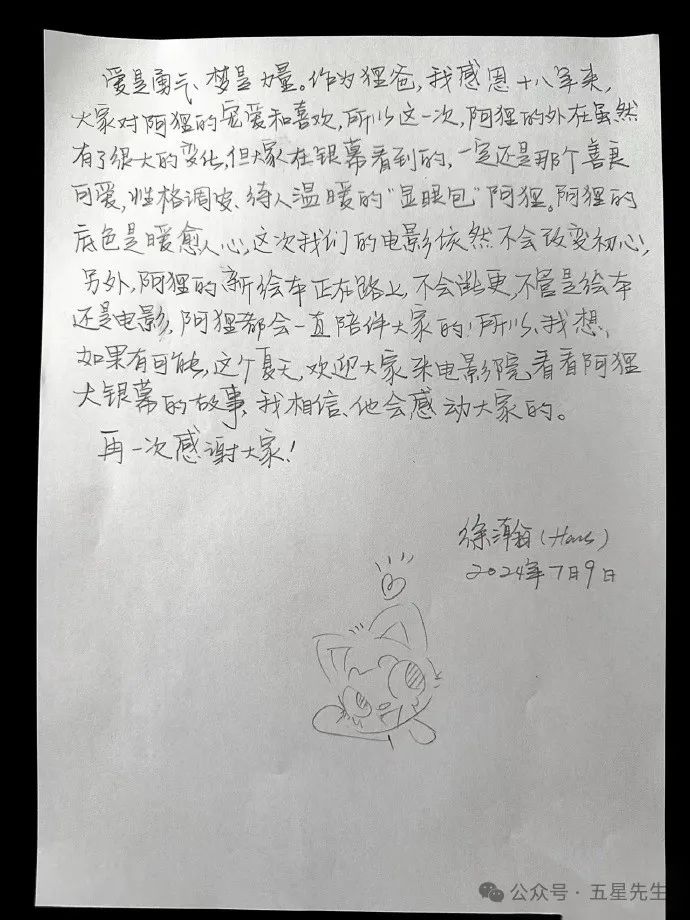 爱是勇气、梦是力量。作为狸爸，我感恩十八年来，
大家对阿狸的宠爱和喜欢，所以这一次，阿狸的外在虽然
有了很大的变化，但大家在银幕看到的，一定还是那个善良
可爱，性格调皮、待人温暖的“显眼包”阿狸。阿狸的
底色是暖愈人心，这次我们的电影依然不会改变初心！
另外，阿狸的新绘本正在路上，不会断更，不管是绘本
还是电影，阿狸都会一直陪伴大家的！所以、我想，
如果有可能，这个夏天，欢迎大家来电影院，看看阿狸
大银幕的故事，我相信、他会感动大家的。
再一次感谢大家！
徐瀚(Hans)
2024年7月9日
公众号·五星先生